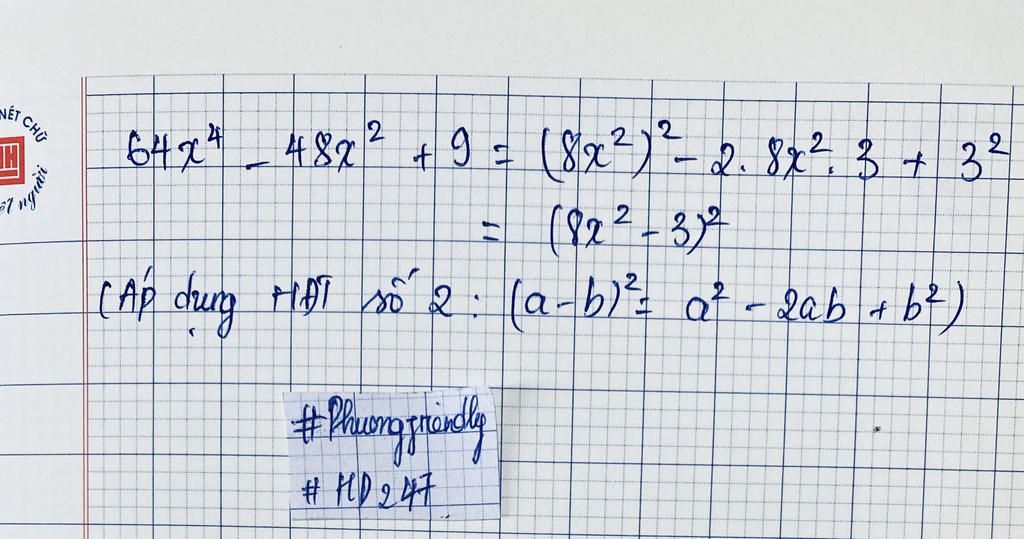 NÉT CHỮ
người
64x⁴ - 48x² + 9 = (8x²)² - 2. 8x². 3 + 3²
= (8x² - 3)²
(Áp dụng HĐT số 2 : (a - b)² = a² - 2ab + b²)
#Phuongfriendly
# HD247